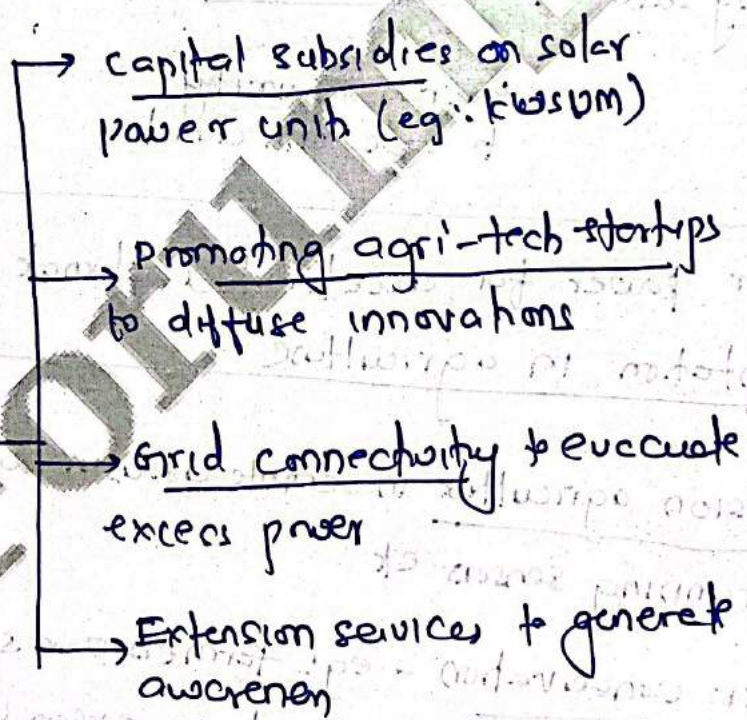 → Capital subsidies on solar
power units (eg: KUSUM)
→ Promoting agri-tech startups
to diffuse innovations
→ Grid connectivity to evccuate
excess power
→ Extension services to generate
awareness